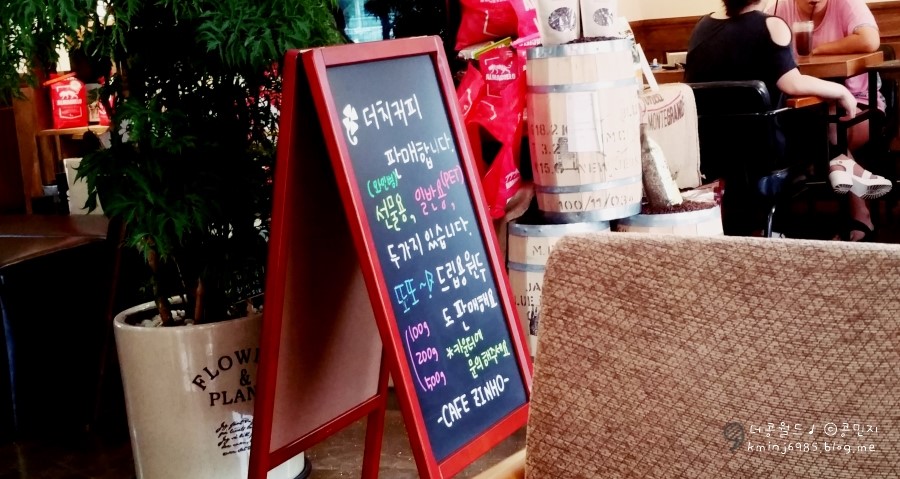 더치커피
판매합니다.
(와인병)
선물용, 일반용(PET)
두가지 있습니다.
또또~ 드립용 원두
도 판매해요
100g
200g
400g
*카운터에
문의해주세요
-CAFE ZINHO-
FLOWE
&
PLAN
MONTEGRAND
100/11/03
더콩월드♪ ⓒ콩민지
kminj6985.blog.me